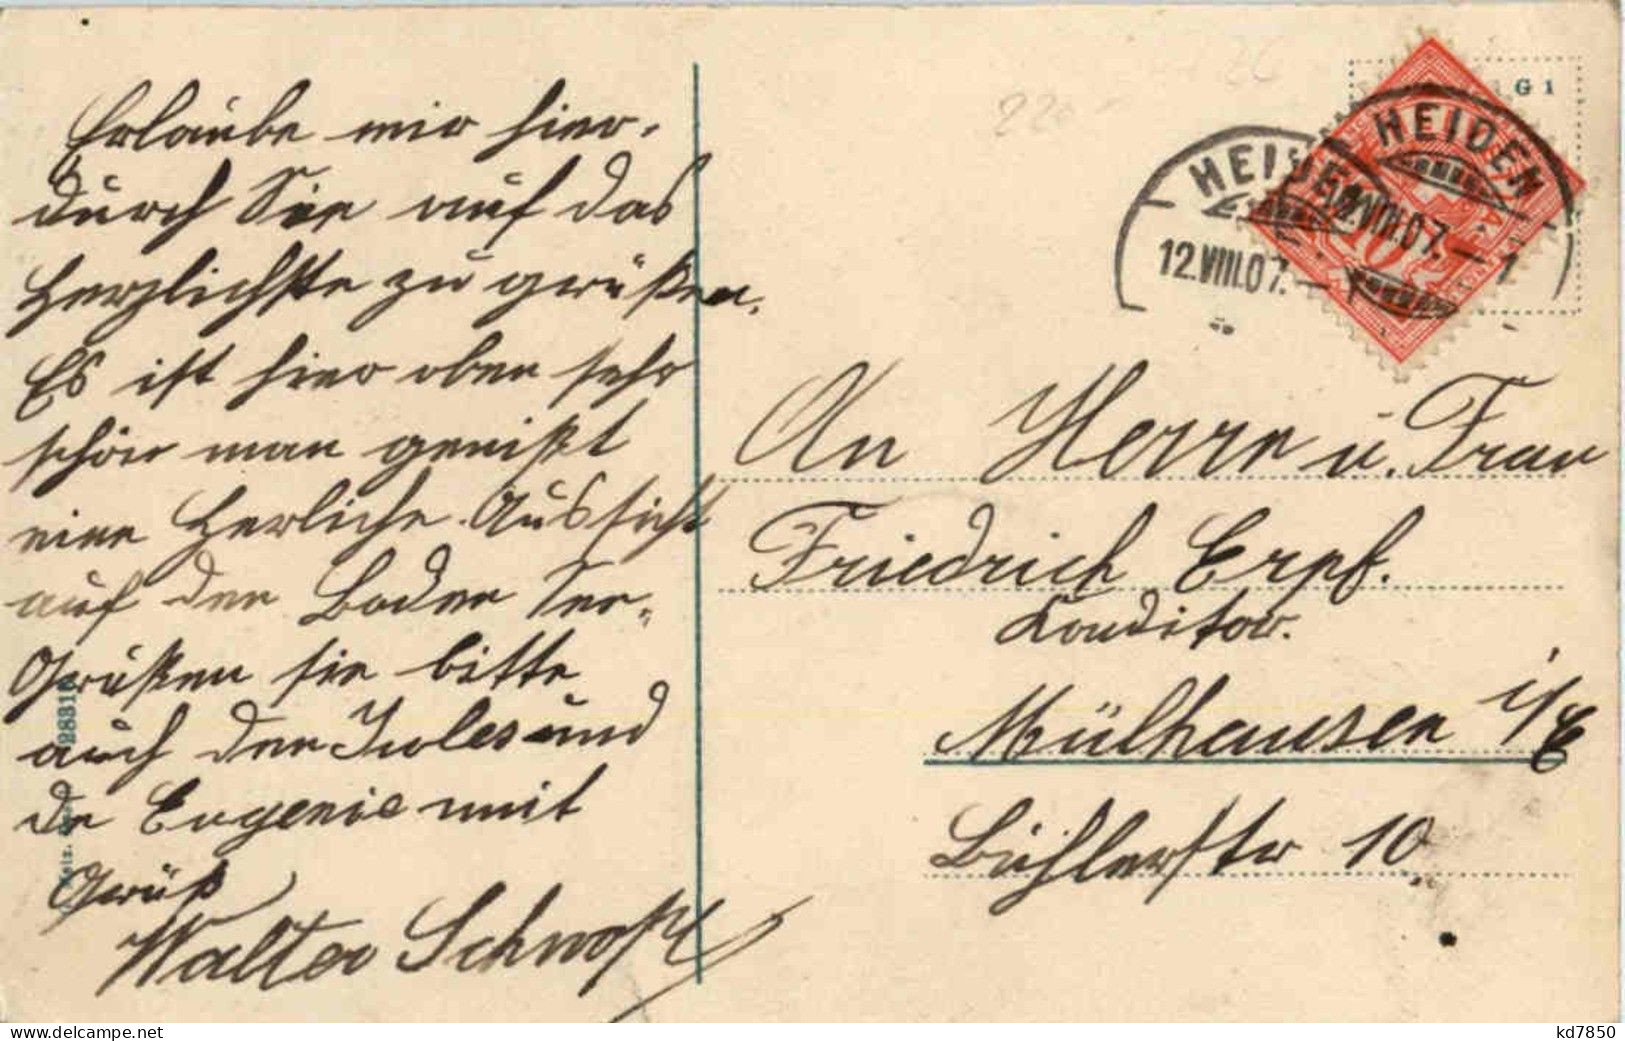 Erlaube mir hier-
durch Sie auf das
Herzlichste zu grüßen.
Es ist hier oben sehr
schön man genißt
eine Herliche Aussicht
auf den Boden See-
Grüßen sie bitte
auch den Jules und
de Eugenie mit
Gruß
Walter
G 1
HEIDEN
12.VIII.07.
HEIDEN
12.VIII.07. – 1
10
An Herrn u. Frau
Friedrich Erpf.
Konditor.
Mülhausen i/E
Bühlerstr 10
28310
kd7850